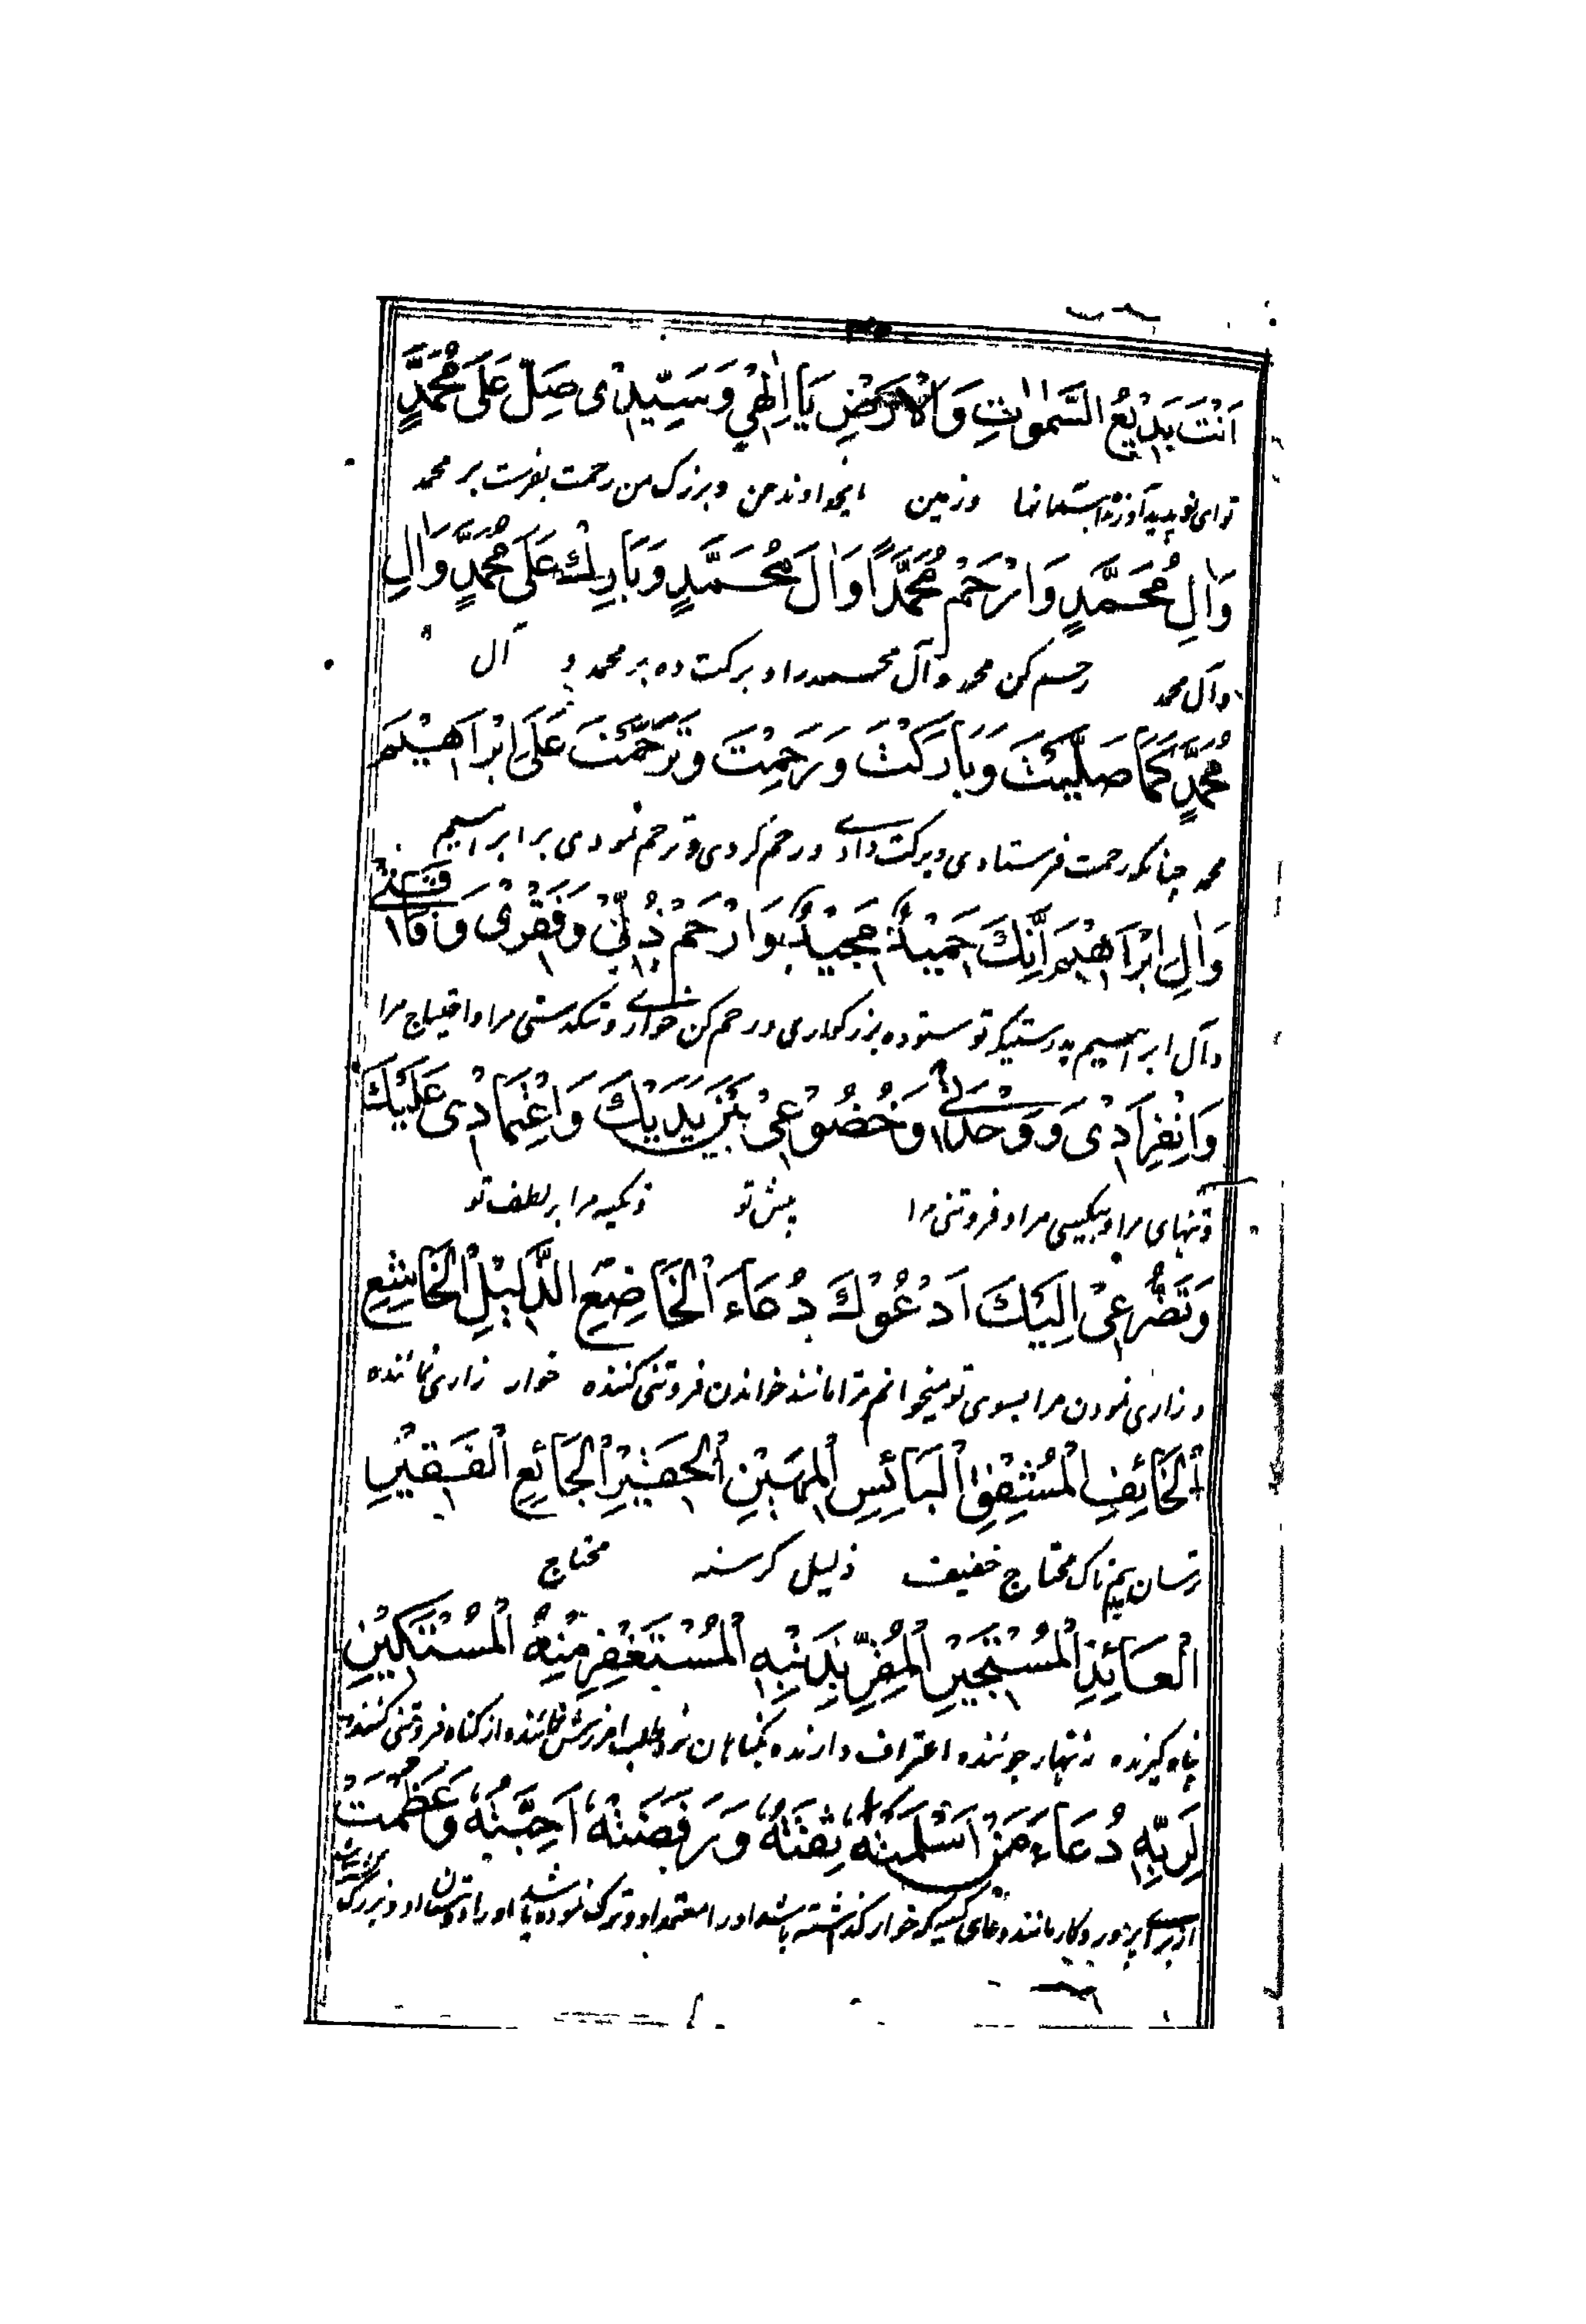 اَنْتَ بَدِيْعُ السَّمٰوٰاتِ وَالْاَرَضْ يَا اِلٰهِيْ وَسَيِّدِىْ صَلِّ عَلَى مُحَمَّدٍ
توای نو پدید آورنده آسمانها وزمین ایخداوند من وبزرک من رحمت بفرست بر محمد
وَاٰلِ مُحَمَّدٍ وَارْحَمْ مُحَمَّدًا وَاٰلَ مُحَمَّدٍ وَبَارِكْ عَلَى مُحَمَّدٍ وَاٰلِ
وآل محمد رحم کن محمد و آل محمد را و برکت ده بر محمد و آل
مُحَمَّدٍ كَمَا صَلَّيْتَ وَبَارَكْتَ وَرَحِمْتَ وَتَرَحَّمْتَ عَلَى اِبْرَاهِيْمَ
محمد چنانکه رحمت فرستادی وبرکت دادے ورحم کردی وترحم نمودی برابراهیم
وَاٰلِ اِبْرَاهِيْمَ اِنَّكَ حَمِيْدٌ مَجِيْدٌ وَارْحَمْ ذُلِّيْ وَفَقْرِىْ وَفَاقَتِيْ
وآل ابراهیم بدرستیکه تو ستوده بزرکواری ورحم کن خوارے وتنکدستی مرا واحتیاج مرا
وَانْفِرَادِىْ وَوَحْدَتِيْ وَخُضُوْعِىْ بَيْنَ يَدَيْكَ وَاعْتِمَادِىْ عَلَيْكَ
وتنهای مرا وبیکسی مرا وفروتنی مرا پیش تو وتکیه مرا بر لطف تو
وَتَضَرُّعِىْ اِلَيْكَ اَدْعُوْكَ دُعَاءَ الْخَاضِعِ الذَّلِيْلِ الْخَاشِعِ
وزاری نمودن مرا بسوی تو میخوانم ترا مانند خواندن فروتنی کننده خوار زاری نماینده
اَلْخَائِفِ الْمُشْفِقِ الْبَائِسِ الْمَهِيْنِ الْحَقِيْرِ الْجَائِعِ الْفَقِيْرِ
ترسان بیم ناک محتاج خفیف ذلیل کرسنه محتاج
الْعَائِذِ الْمُسْتَجِيْرِ الْمُقِرِّ بِذَنْبِهِ الْمُسْتَغْفِرِ مِنْهُ الْمُسْتَكِيْنِ
پناه کیرنده زنهار جوینده اعتراف دارنده بکناهان خود طلب امرزش نماینده از کناه فروتنی کننده
لِرَبِّهِ دُعَاءَ مَنْ اَسْلَمَتْهُ ثِقَتُهُ وَرَفَضَتْهُ اَحِبَّتُهُ وَعَظُمَتْ
ازبراے پروردکار مانند دعای کسیکه خوار کذاشته باشد او را معتمد او وترک نموده باشد او را دوستان او وبزرک